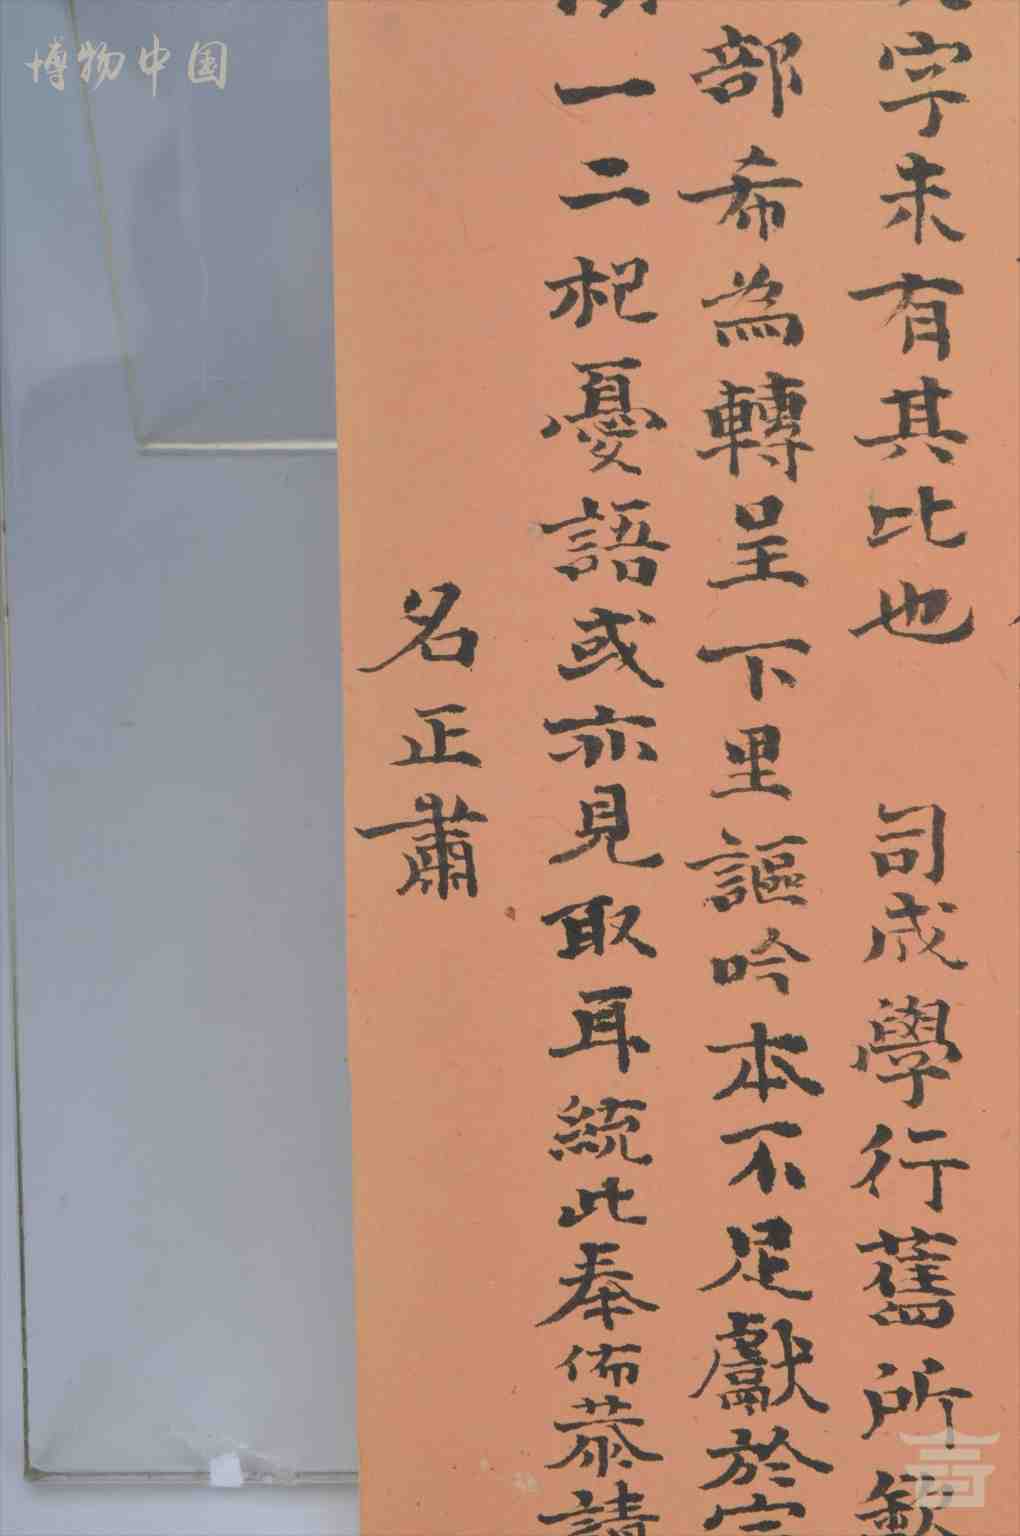 博物中国
字未有其比也 司成學行舊所欽
部希為轉呈下里謳吟本不足獻於
一二杞憂語或亦見取耳統此奉佈恭請
名正肅